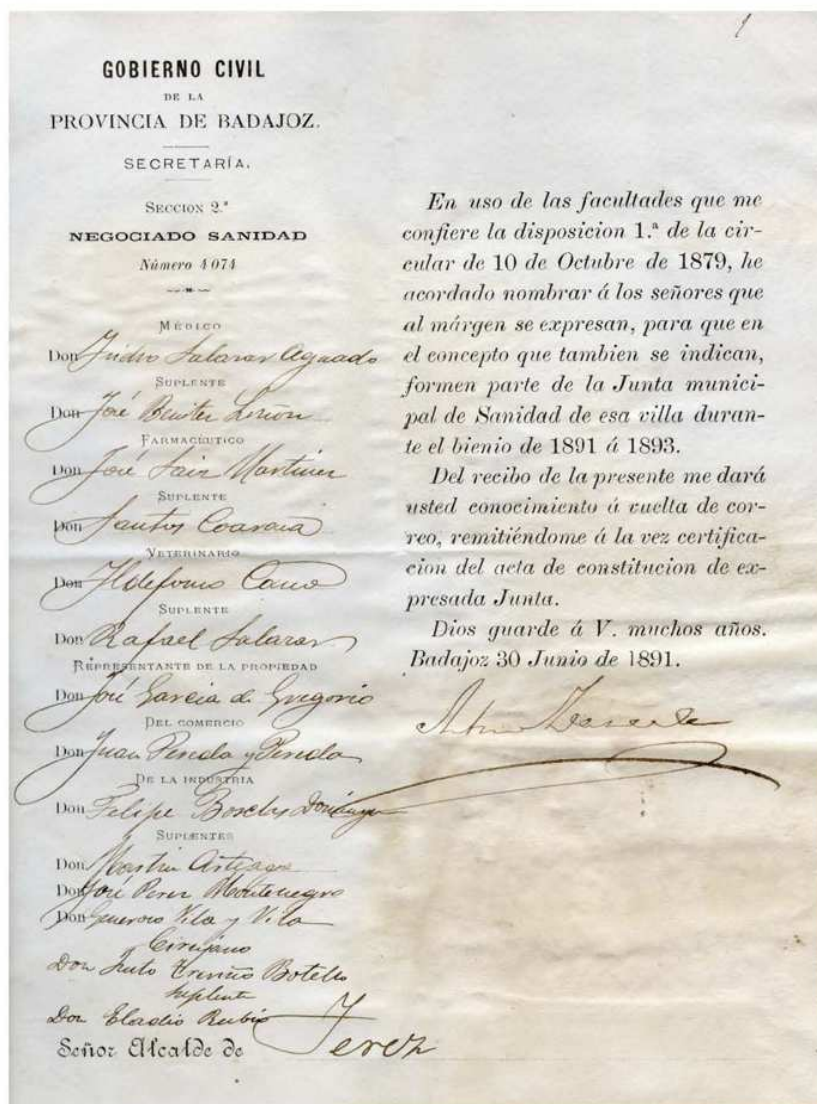 GOBIERNO CIVIL
DE LA
PROVINCIA DE BADAJOZ.
SECRETARÍA.
SECCION 2.ª
NEGOCIADO SANIDAD
Número 4074
MÉDICO
Don Isidro Salazar Aguado
SUPLENTE
Don José Benitez
FARMACÉUTICO
Don José Sainz Martinez
SUPLENTE
Don Santos
VETERINARIO
Don Ildefonso Cano
SUPLENTE
Don Rafael Salazar
REPRESENTANTE DE LA PROPIEDAD
Don José Garcia de Gregorio
DEL COMERCIO
Don Juan Pereda y Pereda
DE LA INDUSTRIA
Don Felipe Dominguez
SUPLENTES
Don Martin Artiaga
Don José Perez Montenegro
Don Generoso Vila y Vila
Cirujano
Don Justo Treviño Botello
suplente
Don Eladio Rubio
Señor Alcalde de Jerez
1
En uso de las facultades que me
confiere la disposicion 1.ª de la cir-
cular de 10 de Octubre de 1879, he
acordado nombrar á los señores que
al márgen se expresan, para que en
el concepto que tambien se indican,
formen parte de la Junta munici-
pal de Sanidad de esa villa duran-
te el bienio de 1891 á 1893.
Del recibo de la presente me dará
usted conocimiento á vuelta de cor-
reo, remitiéndome á la vez certifica-
cion del acta de constitucion de ex-
presada Junta.
Dios guarde á V. muchos años.
Badajoz 30 Junio de 1891.